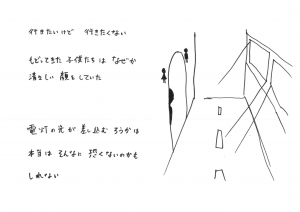 行きたいけど 行きたくない
もどってきた 子供たち は なぜか
清々しい 顔をしていた
電灯の光が 差し込む ろうかは
本当は そんなに 恐くないのかも
しれない